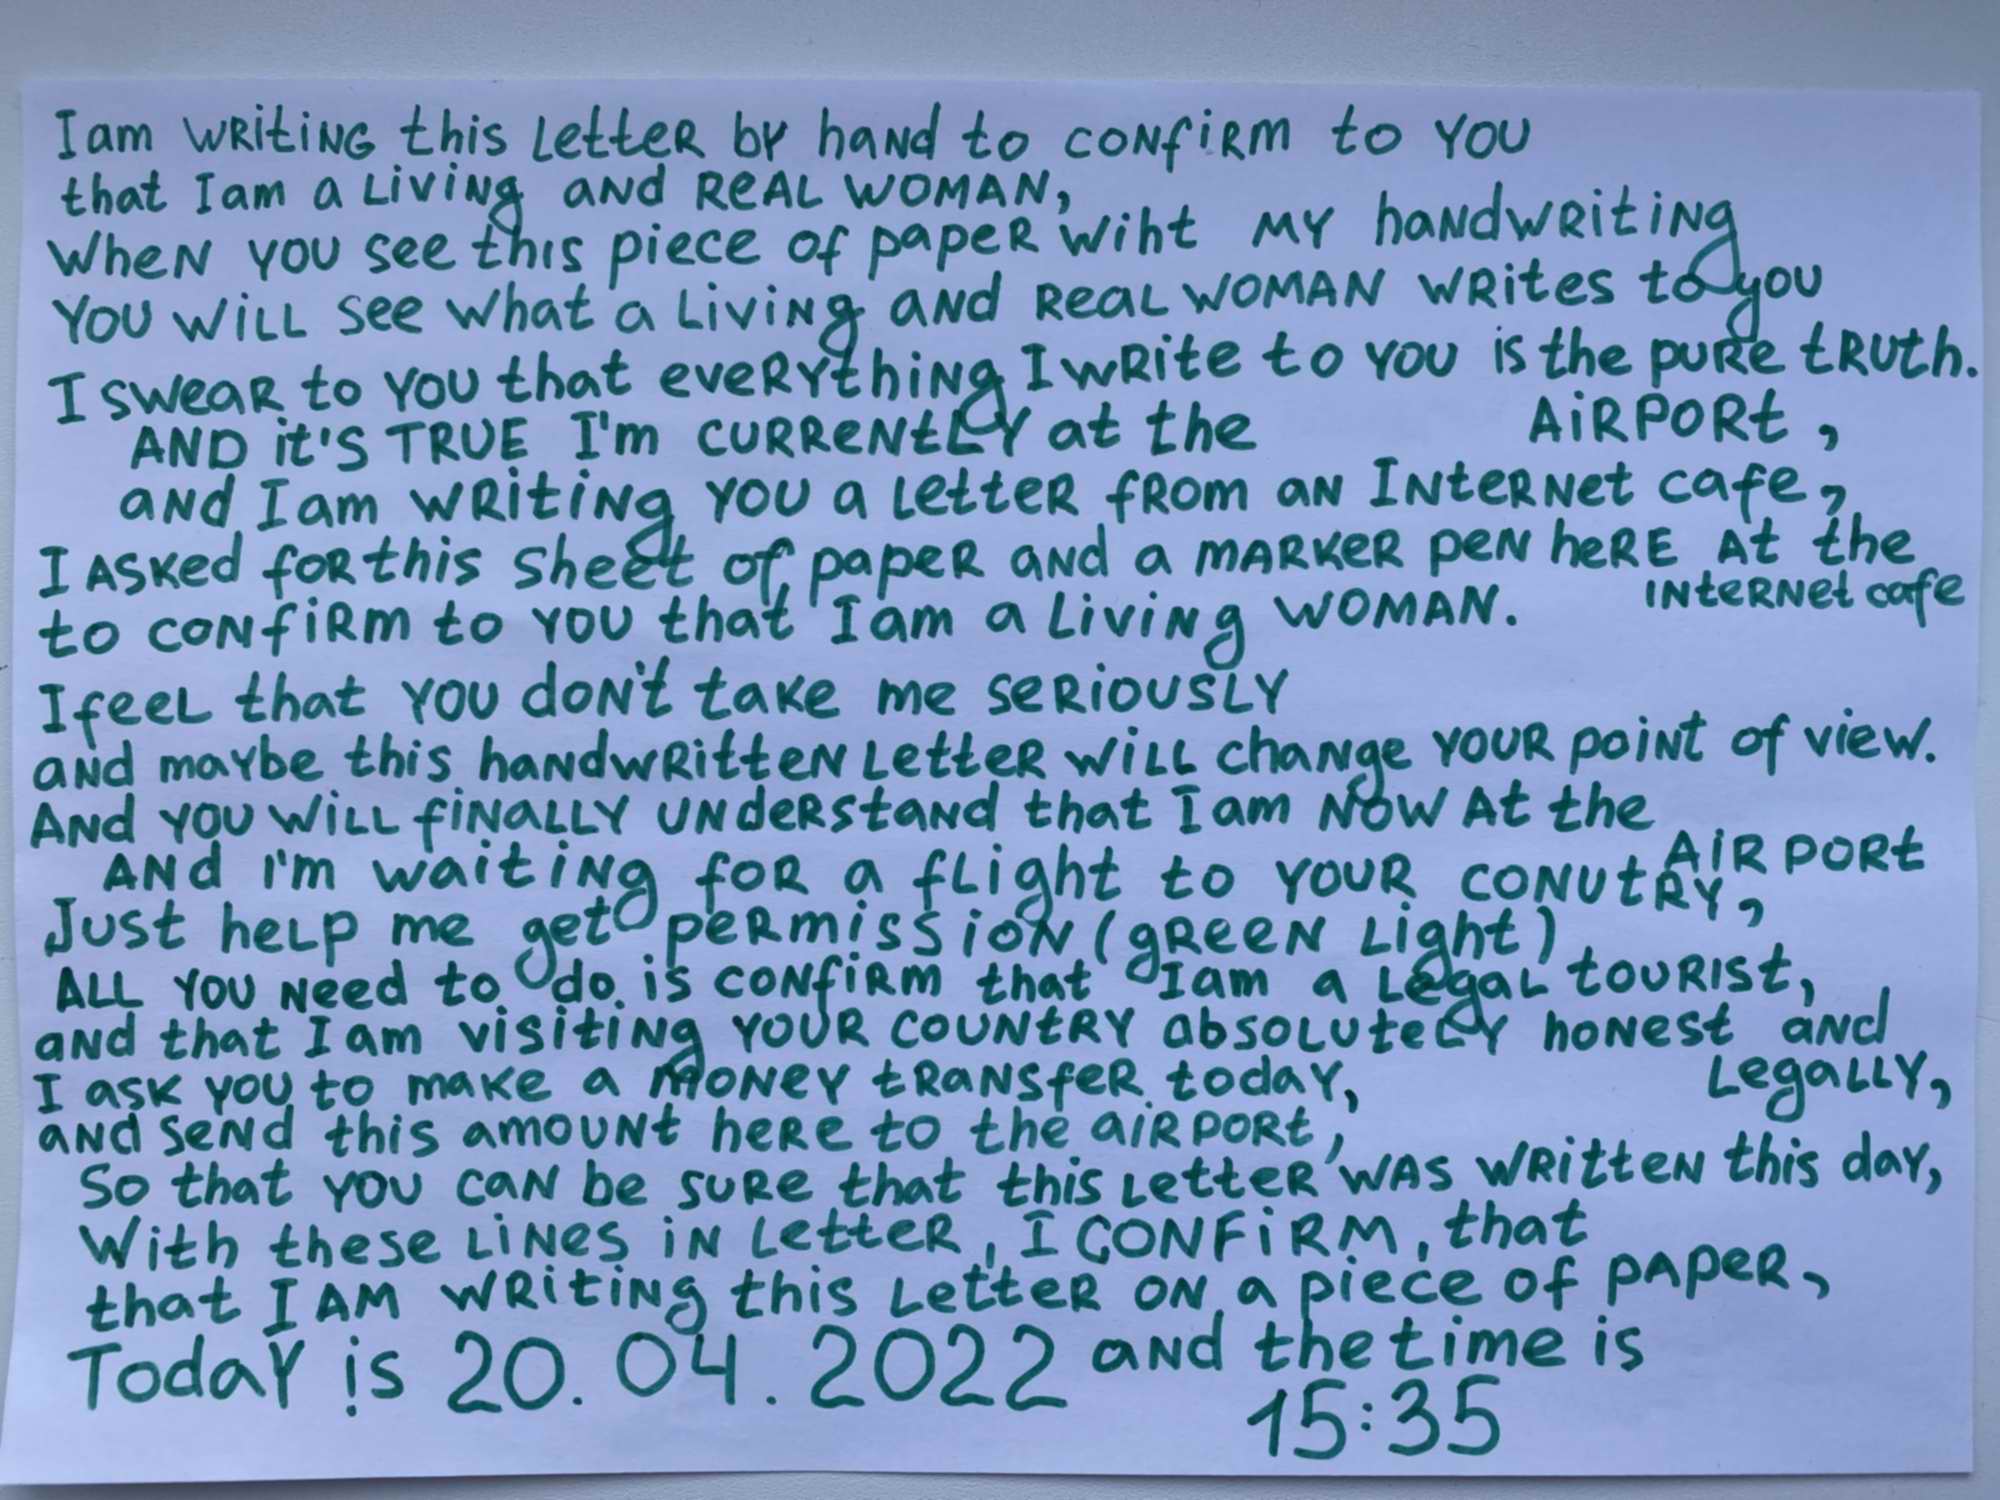 I am writing this letter by hand to confirm to you
that I am a living and real woman,
When you see this piece of paper wiht my handwriting
you will see what a living and real woman writes to you
I swear to you that everything I write to you is the pure truth.
AND it's TRUE I'm currently at the AiRPORt,
and I am writing you a letter from an Internet cafe,
I asked for this sheet of paper and a marker pen here at the
Internet cafe
to confirm to you that I am a living woman.
I feel that you don't take me seriously
and maybe this handwritten letter will change your point of view.
And you will finally understand that I am now at the
AiRPORt
And i'm waiting for a flight to your conutry,
Just help me get permission (green light)
All you need to do is confirm that I am a legal tourist,
and that I am visiting your country absolutely honest and
legally,
I ask you to make a money transfer today,
and send this amount here to the airport,
So that you can be sure that this letter was written this day,
With these lines in letter, I CONFiRM, that
that I AM writing this letter on a piece of paper,
Today is 20.04.2022 and the time is
15:35